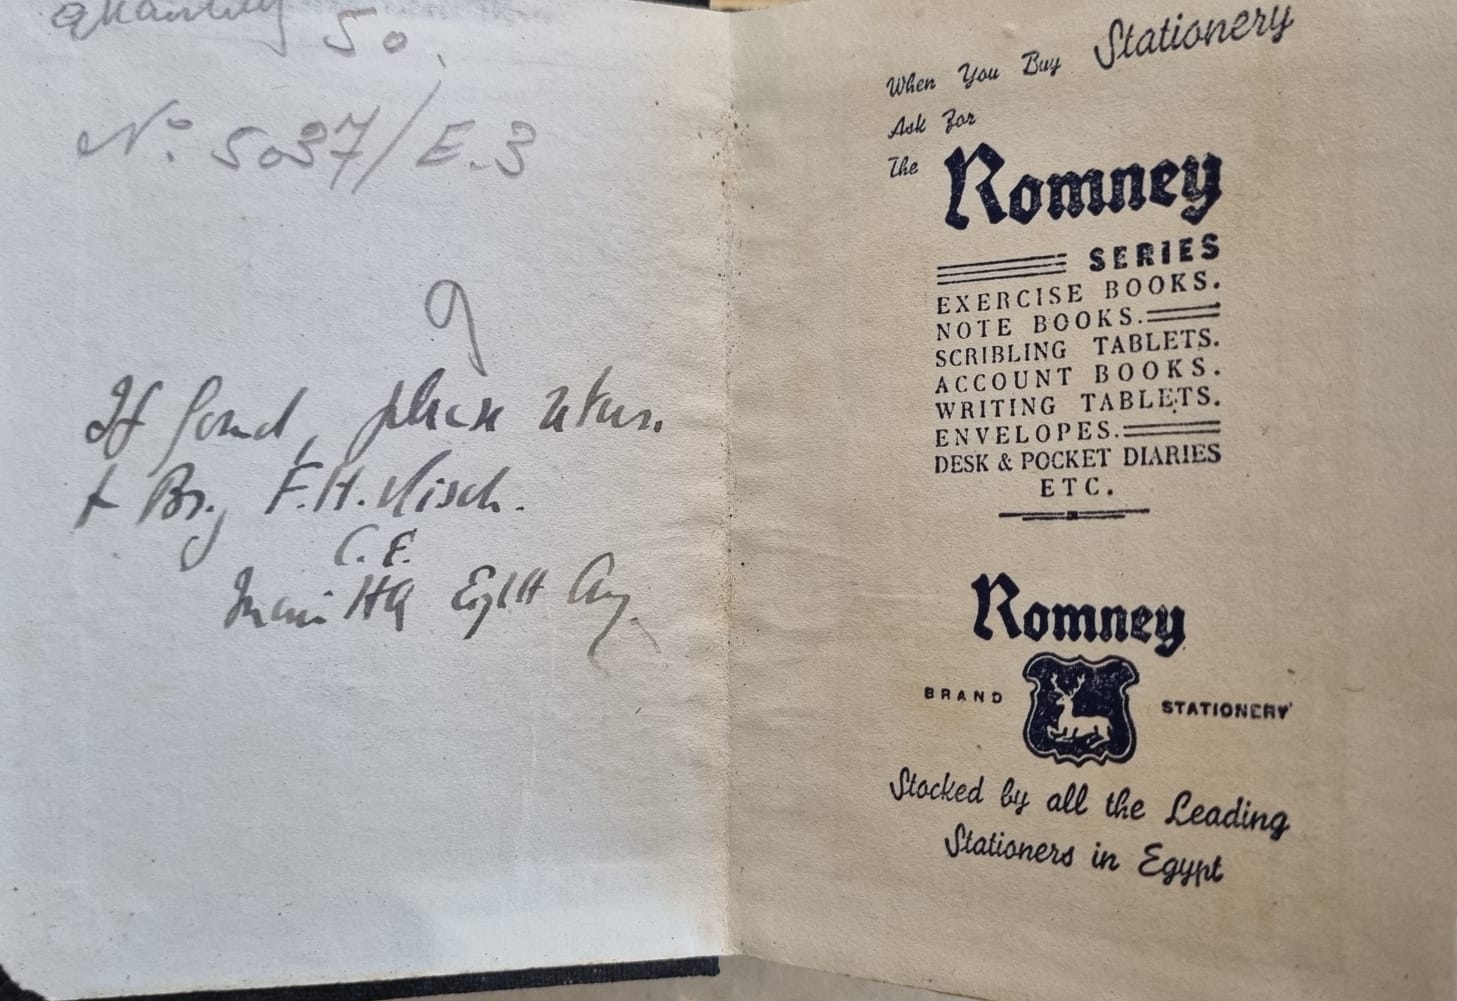 Quantity 50.
No. 5037/E.3
9
If found, please return
to Brig. F.H. Kisch.
C.E.
Main HQ Eighth Army.
When You Buy Stationery
Ask For
The Romney
SERIES
EXERCISE BOOKS.
NOTE BOOKS.
SCRIBLING TABLETS.
ACCOUNT BOOKS.
WRITING TABLETS.
ENVELOPES.
DESK & POCKET DIARIES
ETC.
Romney
BRAND STATIONERY
Stocked by all the Leading
Stationers in Egypt